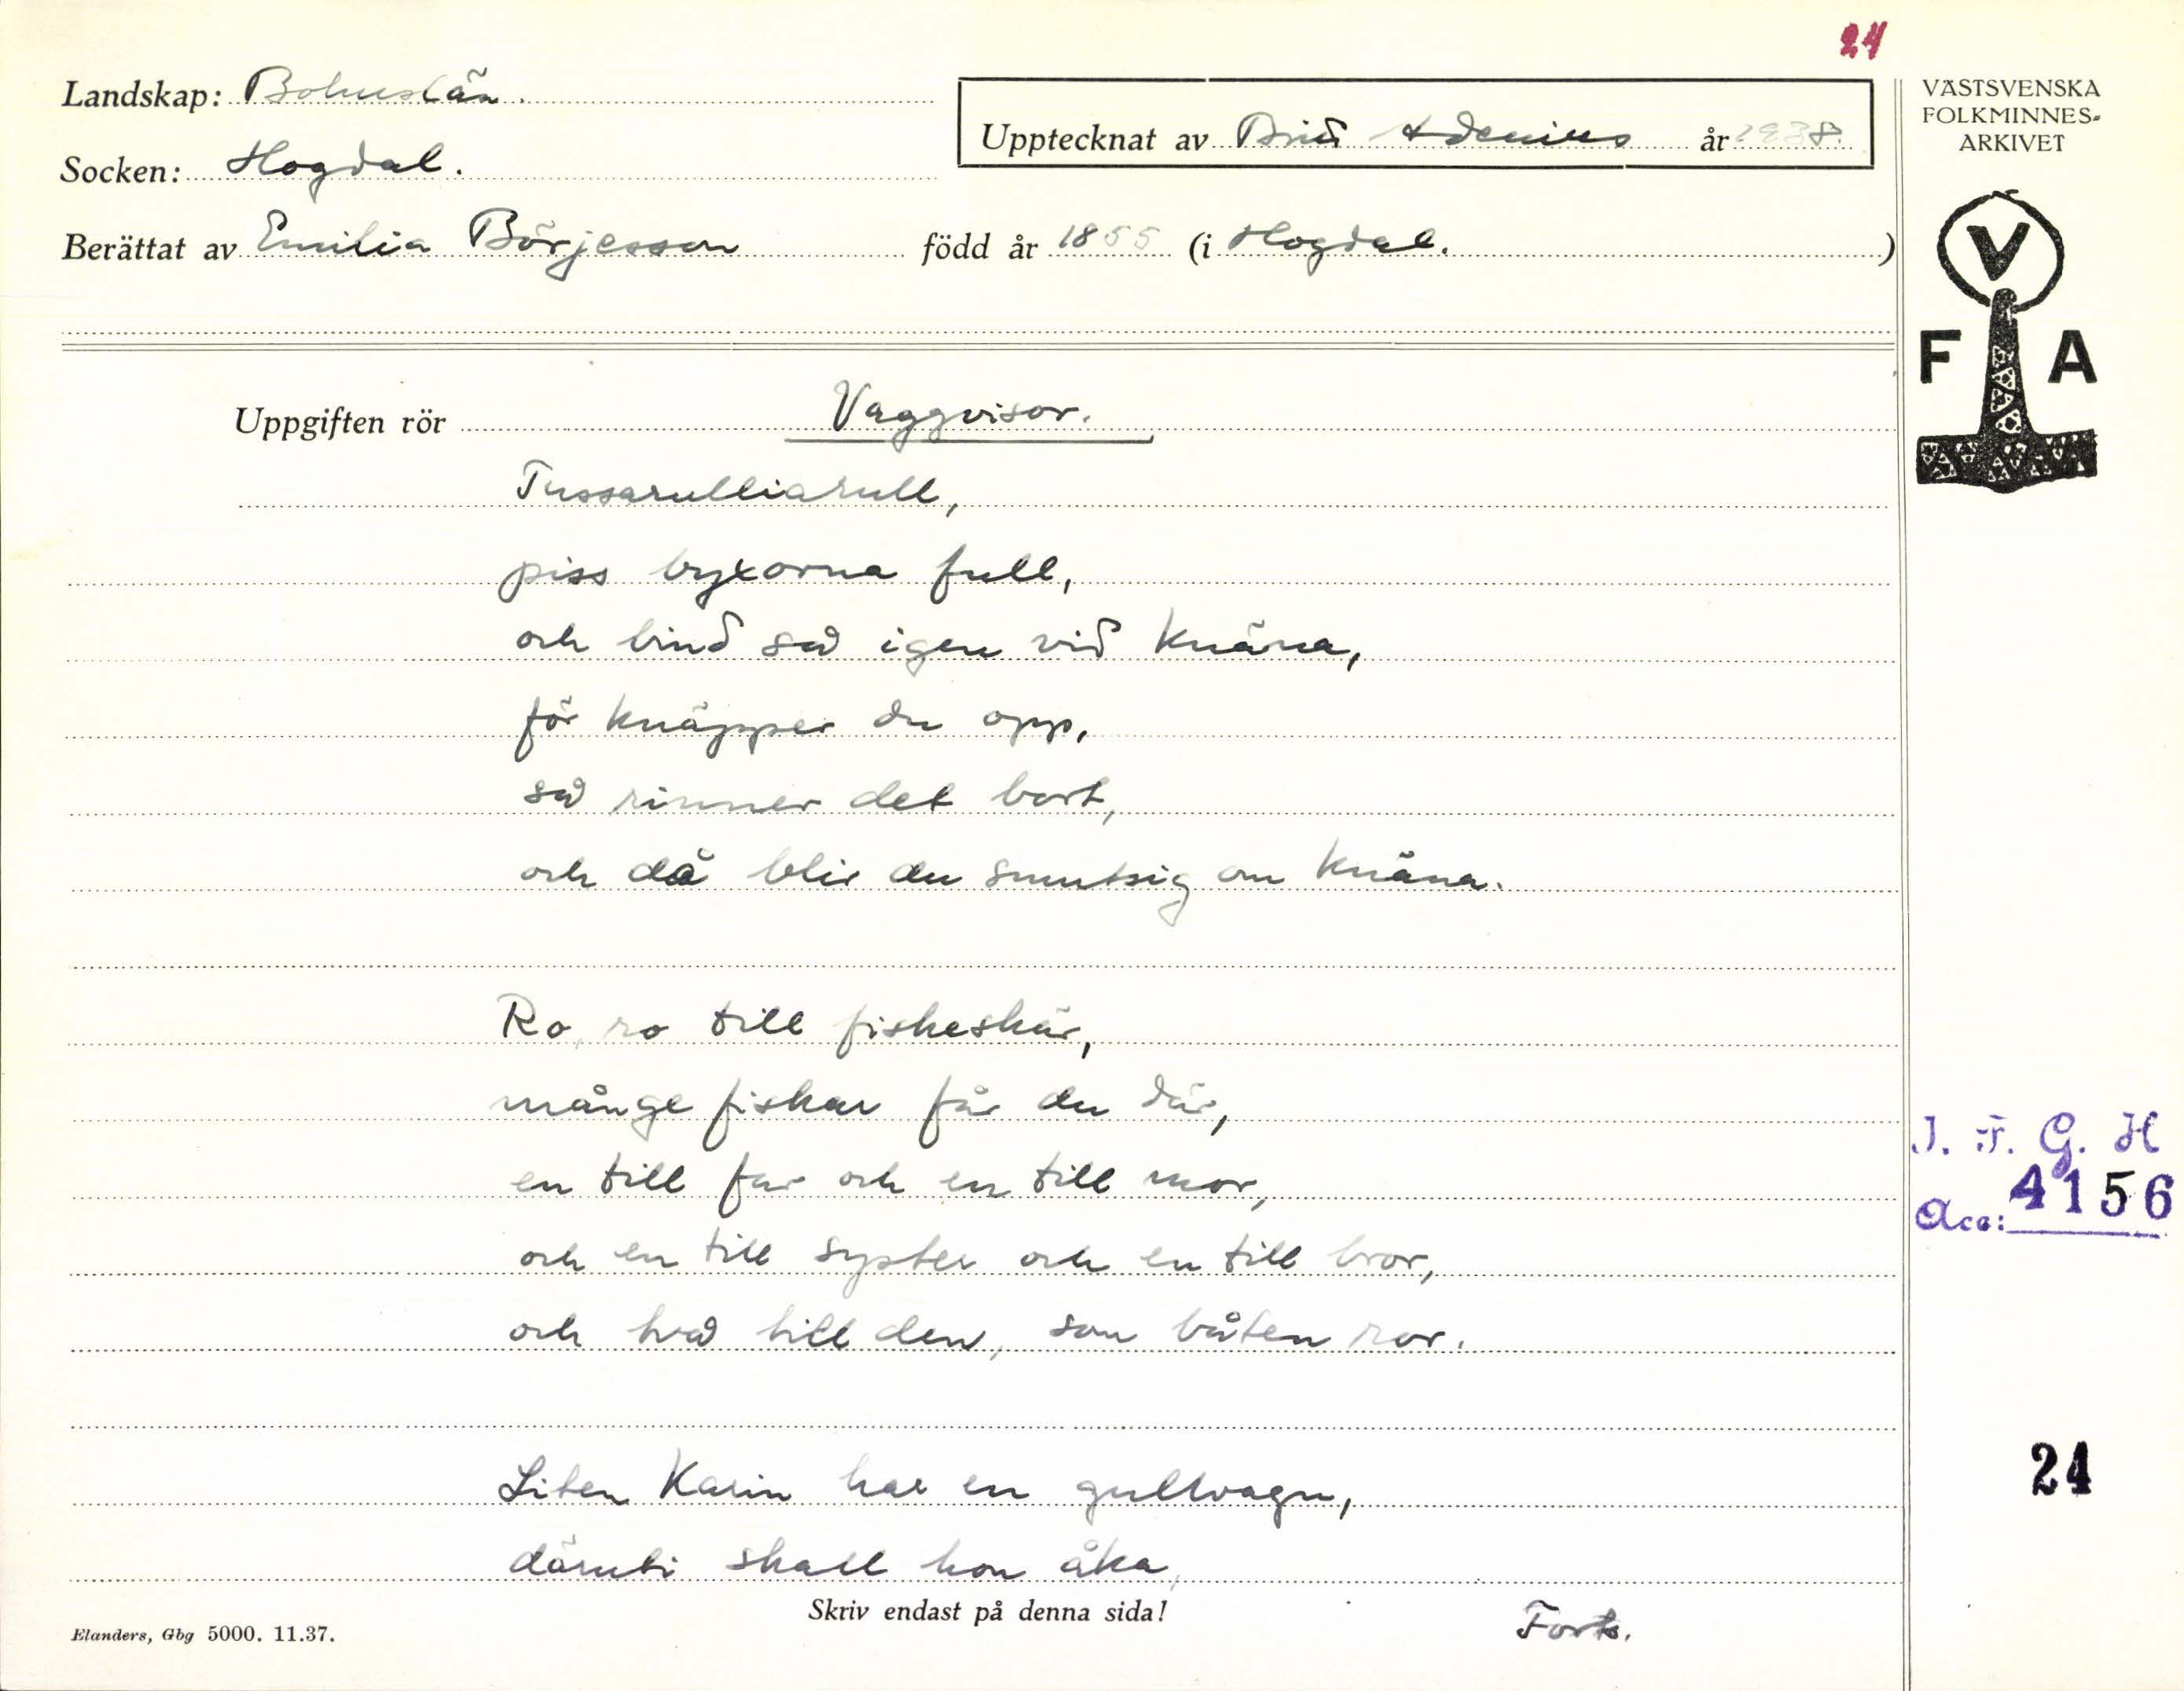 24
Landskap: Bohuslän.
Upptecknat av Brit Adenius år 1938.
Socken: Hogdal.
Berättat av Emilia Börjesson född år 1855 (i Hogdal.)
VÄSTSVENSKA
FOLKMINNES-
ARKIVET
V
F A
Uppgiften rör Vaggvisor.
Tussarulliarull,
piss byxorna full,
och bind så igen vid knäna,
för knäpper du opp,
så rinner det bort,
och då blir du smutsig om knäna.
Ro, ro till fiskeskär,
månge fiskar får du där,
en till far och en till mor,
och en till syster och en till bror,
och två till den, som båten ror.
Liten Karin har en gullvagn,
däruti skall hon åka,
Skriv endast på denna sida!
Forts.
Elanders, Gbg 5000. 11.37.
I. F. G. H
Acc: 4156
24